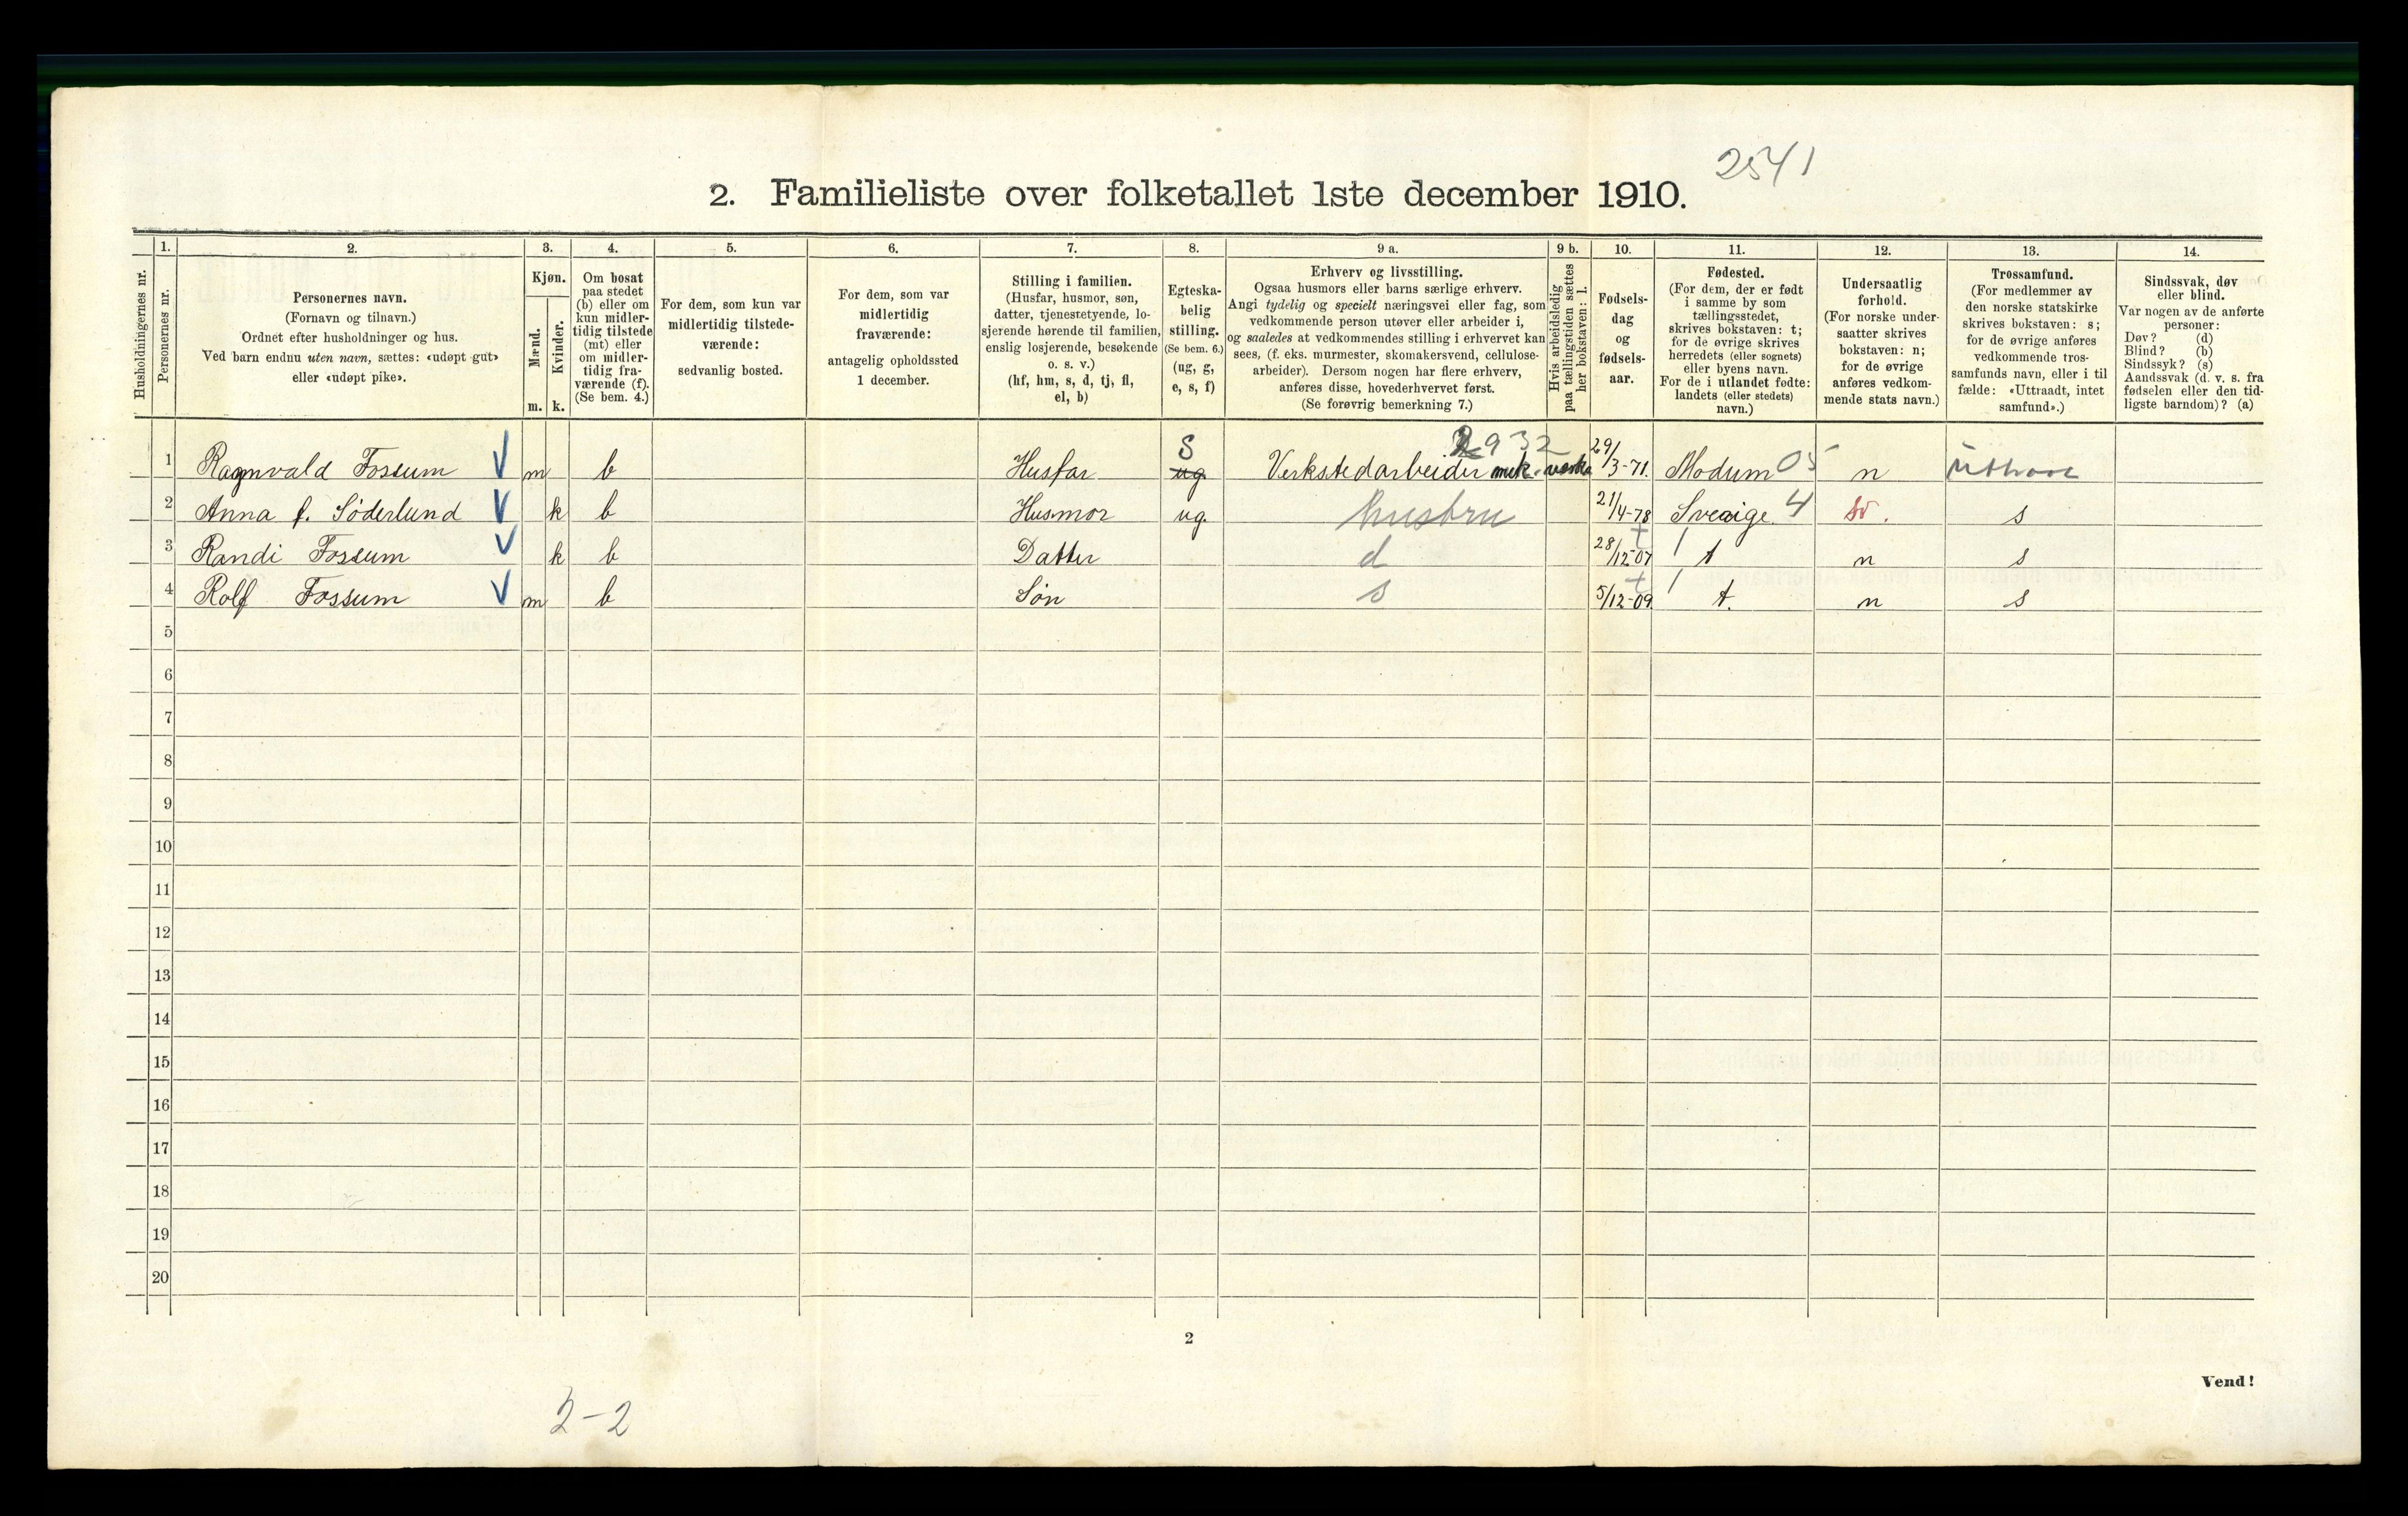 2541
2. Familieliste over folketallet 1ste december 1910.
Husholdningernes nr.
1.
Personernes nr.
2.
Personernes navn.
(Fornavn og tilnavn.)
Ordnet efter husholdninger og hus.
Ved barn endnu uten navn, sættes: «udøpt gut»
eller «udøpt pike».
3.
Kjøn.
Mænd.
Kvinder.
m. k.
4.
Om bosat
paa stedet
(b) eller om
kun midler-
tidig tilstede
(mt) eller
om midler-
tidig fra-
værende (f).
(Se bem. 4.)
5.
For dem, som kun var
midlertidig tilstede-
værende:
sedvanlig bosted.
6.
For dem, som var
midlertidig
fraværende:
antagelig opholdssted
1 december.
7.
Stilling i familien.
(Husfar, husmor, søn,
datter, tjenestetyende, lo-
sjerende hørende til familien,
enslig losjerende, besøkende
o. s. v.)
(hf, hm, s, d, tj, fl,
el, b)
8.
Egteska-
belig
stilling.
(Se bem. 6.)
(ug, g,
e, s, f)
9 a.
Erhverv og livsstilling.
Ogsaa husmors eller barns særlige erhverv.
Angi tydelig og specielt næringsvei eller fag, som
vedkommende person utøver eller arbeider i,
og saaledes at vedkommendes stilling i erhvervet kan
sees, (f. eks. murmester, skomakersvend, cellulose-
arbeider). Dersom nogen har flere erhverv,
anføres disse, hovederhvervet først.
(Se forøvrig bemerkning 7.)
9 b.
Hvis arbeidsledig
paa tællingstiden sættes
her bokstaven: l.
10.
Fødsels-
dag
og
fødsels-
aar.
11.
Fødested.
(For dem, der er født
i samme by som
tællingsstedet,
skrives bokstaven: t;
for de øvrige skrives
herredets (eller sognets)
eller byens navn.
For de i utlandet fødte:
landets (eller stedets)
navn.)
12.
Undersaatlig
forhold.
(For norske under-
saatter skrives
bokstaven: n;
for de øvrige
anføres vedkom-
mende stats navn.)
13.
Trossamfund.
(For medlemmer av
den norske statskirke
skrives bokstaven: s;
for de øvrige anføres
vedkommende tros-
samfunds navn, eller i til
fælde: «Uttraadt, intet
samfund».)
14.
Sindssvak, døv
eller blind.
Var nogen av de anførte
personer:
Døv? (d)
Blind? (b)
Sindssyk? (s)
Aandssvak (d. v. s. fra
fødselen eller den tid-
ligste barndom)? (a)
1 Ragnvald Fossum V m b Husfar ug S Verkstedarbeider mek. 932 29/3-71. Modum 05 n
2 Anna f. Söderlund V k b Husmor ug. husbru 21/4-78 Sverige 4 sv. s
3 Randi Fossum V k b Datter d 28/12-07 + 1 t n s
4 Rolf Fossum V m b Søn s 5/12-09 + 1 t. n s
5
6
7
8
9
10
11
12
13
14
15
16
17
18
19
20
2
Vend!
2-2